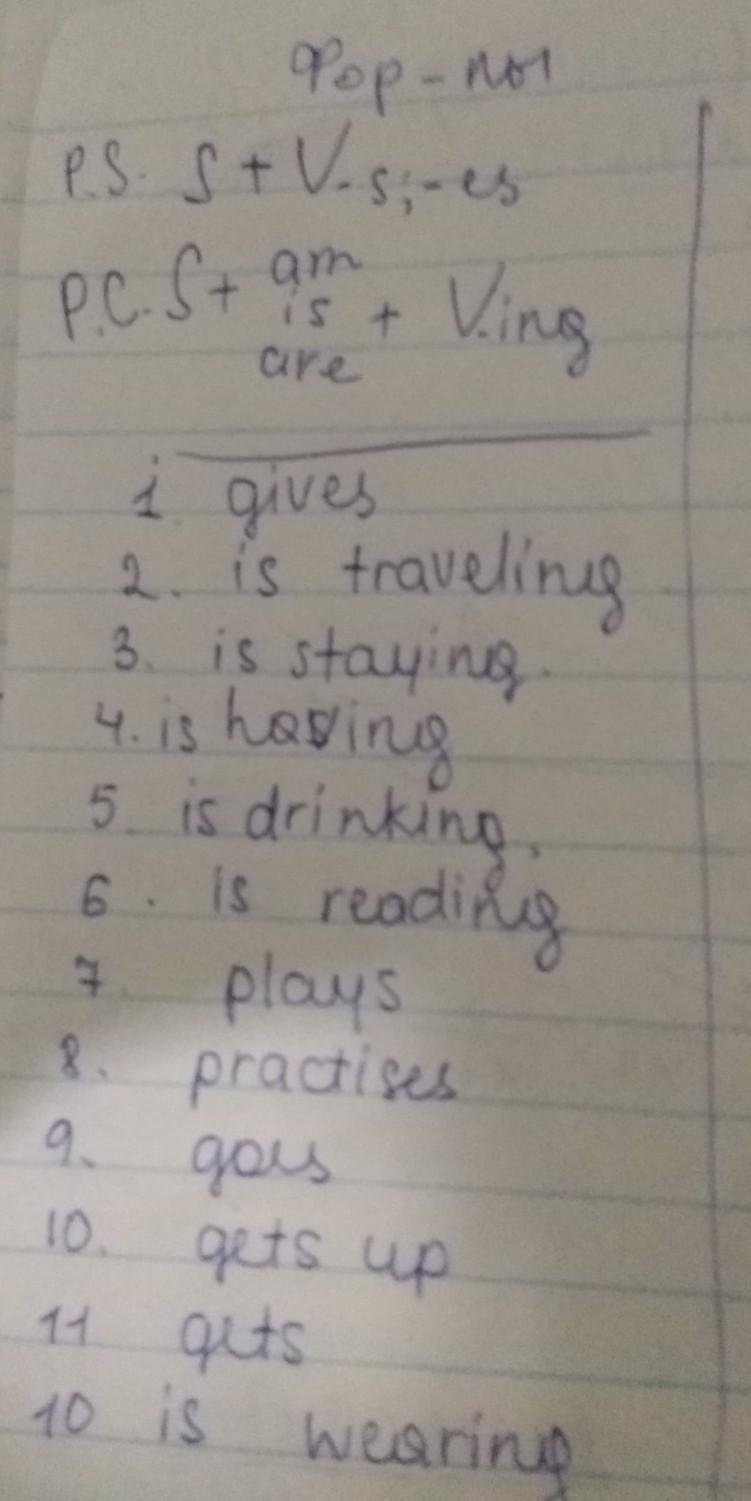 Фор-лы
P.S. S + V-s;-es
P.C. S + am
is + V.ing
are
1 gives
2. is traveling
3. is staying.
4. is having
5. is drinking.
6. is reading
7. plays
8. practises
9. goes
10. gets up
11 gets
10 is wearing